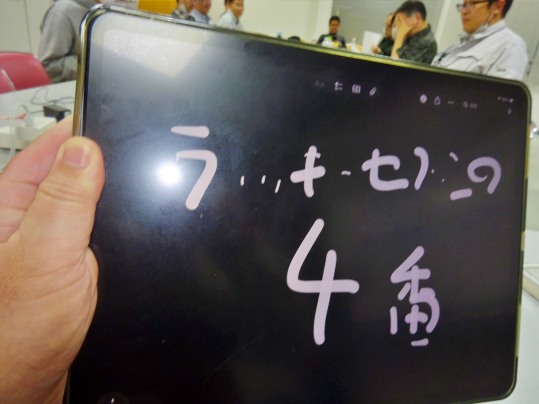 ラッキーセブンの
4番